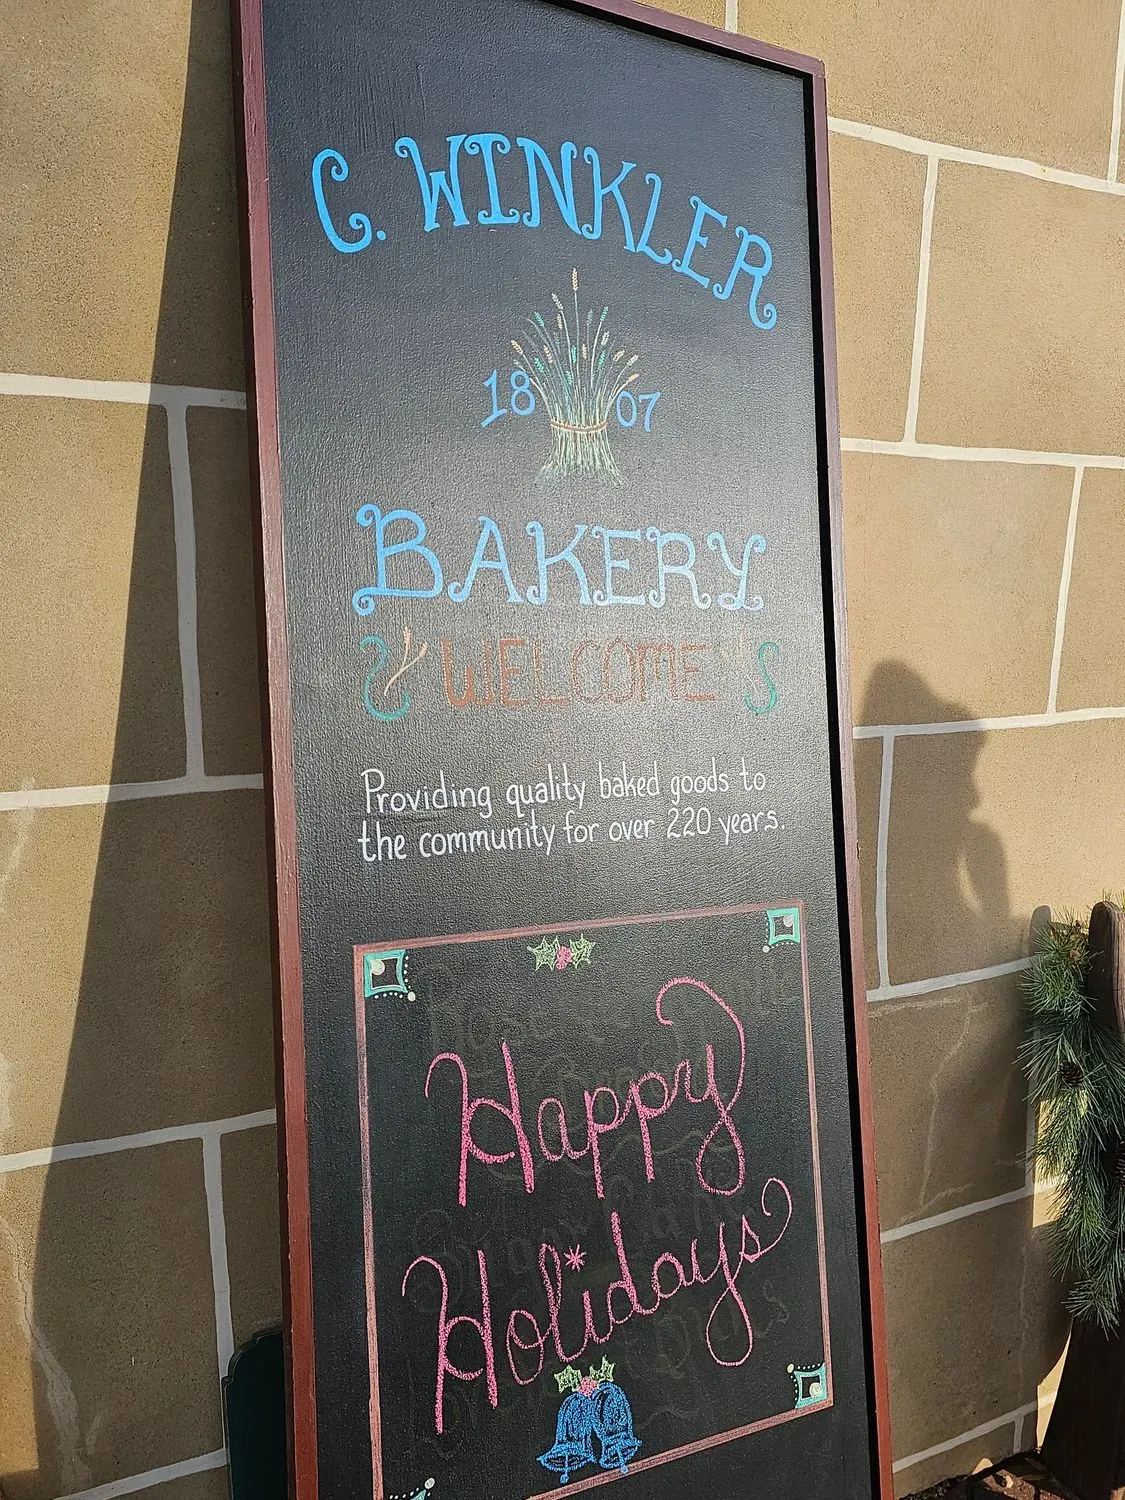 C. WINKLER
1807
BAKERY
WELCOME
Providing quality baked goods to
the community for over 220 years.
Happy
Holidays